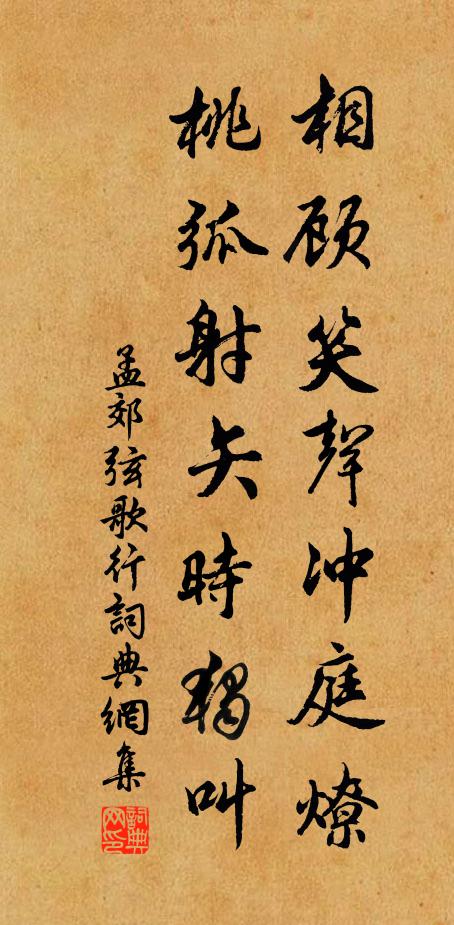 相顾笑聲冲庭燎
桃弧射矢時獨叫
孟郊弦歌行詞典網集
詞典网印